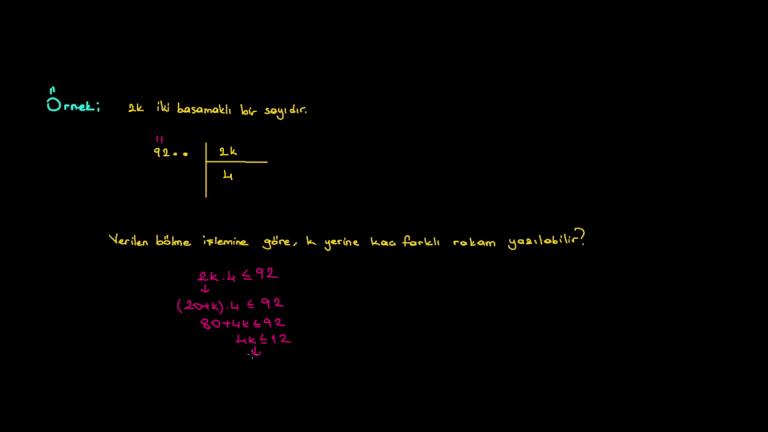 Örnek: 2k iki basamaklı bir sayıdır.
92.. 2k
4
Verilen bölme işlemine göre, k yerine kaç farklı rakam yazılabilir?
2k.4 ≤ 92
(20+k).4 ≤ 92
80+4k ≤ 92
4k ≤ 12